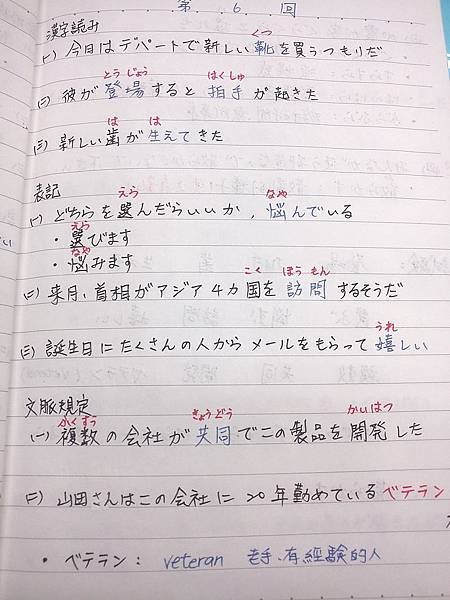 第 6 回
漢字読み
くつ
(一) 今日はデパートで新しい靴を買うつもりだ
とうじょう はくしゅ
(二) 彼が登場すると拍手が起きた
は は
(三) 新しい歯が生えてきた
表記
えら なや
(一) どちらを選んだらいいか，悩んでいる
えら
・選びます
なや
・悩みます
こく ほうもん
(二) 来月、首相がアジア4カ国を訪問するそうだ
うれ
(三) 誕生日にたくさんの人からメールをもらって嬉しい
文脈規定
かくすう きょうどう かいはつ
(一) 複数の会社が共同でこの製品を開発した
(二) 山田さんはこの会社に20年勤めているベテラン
・ベテラン： veteran 老手、有經験的人